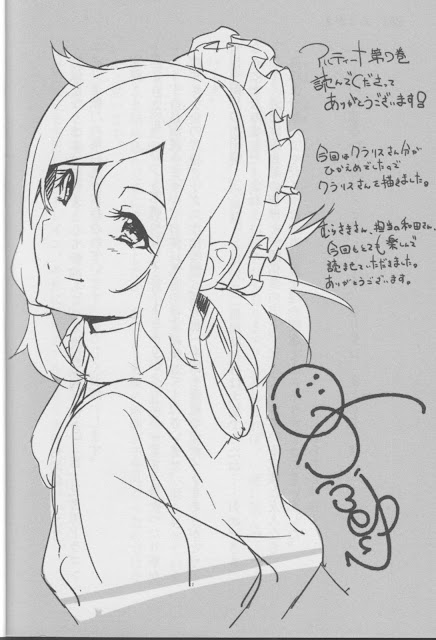 アルティーナ第7巻
読んでくださって
ありがとうございます!
今回はクラリスさん分が
ひかえめでしたので
クラリスさんを描きました。
むらさきさん、担当の和田さん、
今回もとても楽しんで
読ませていただきました。
ありがとうございます。